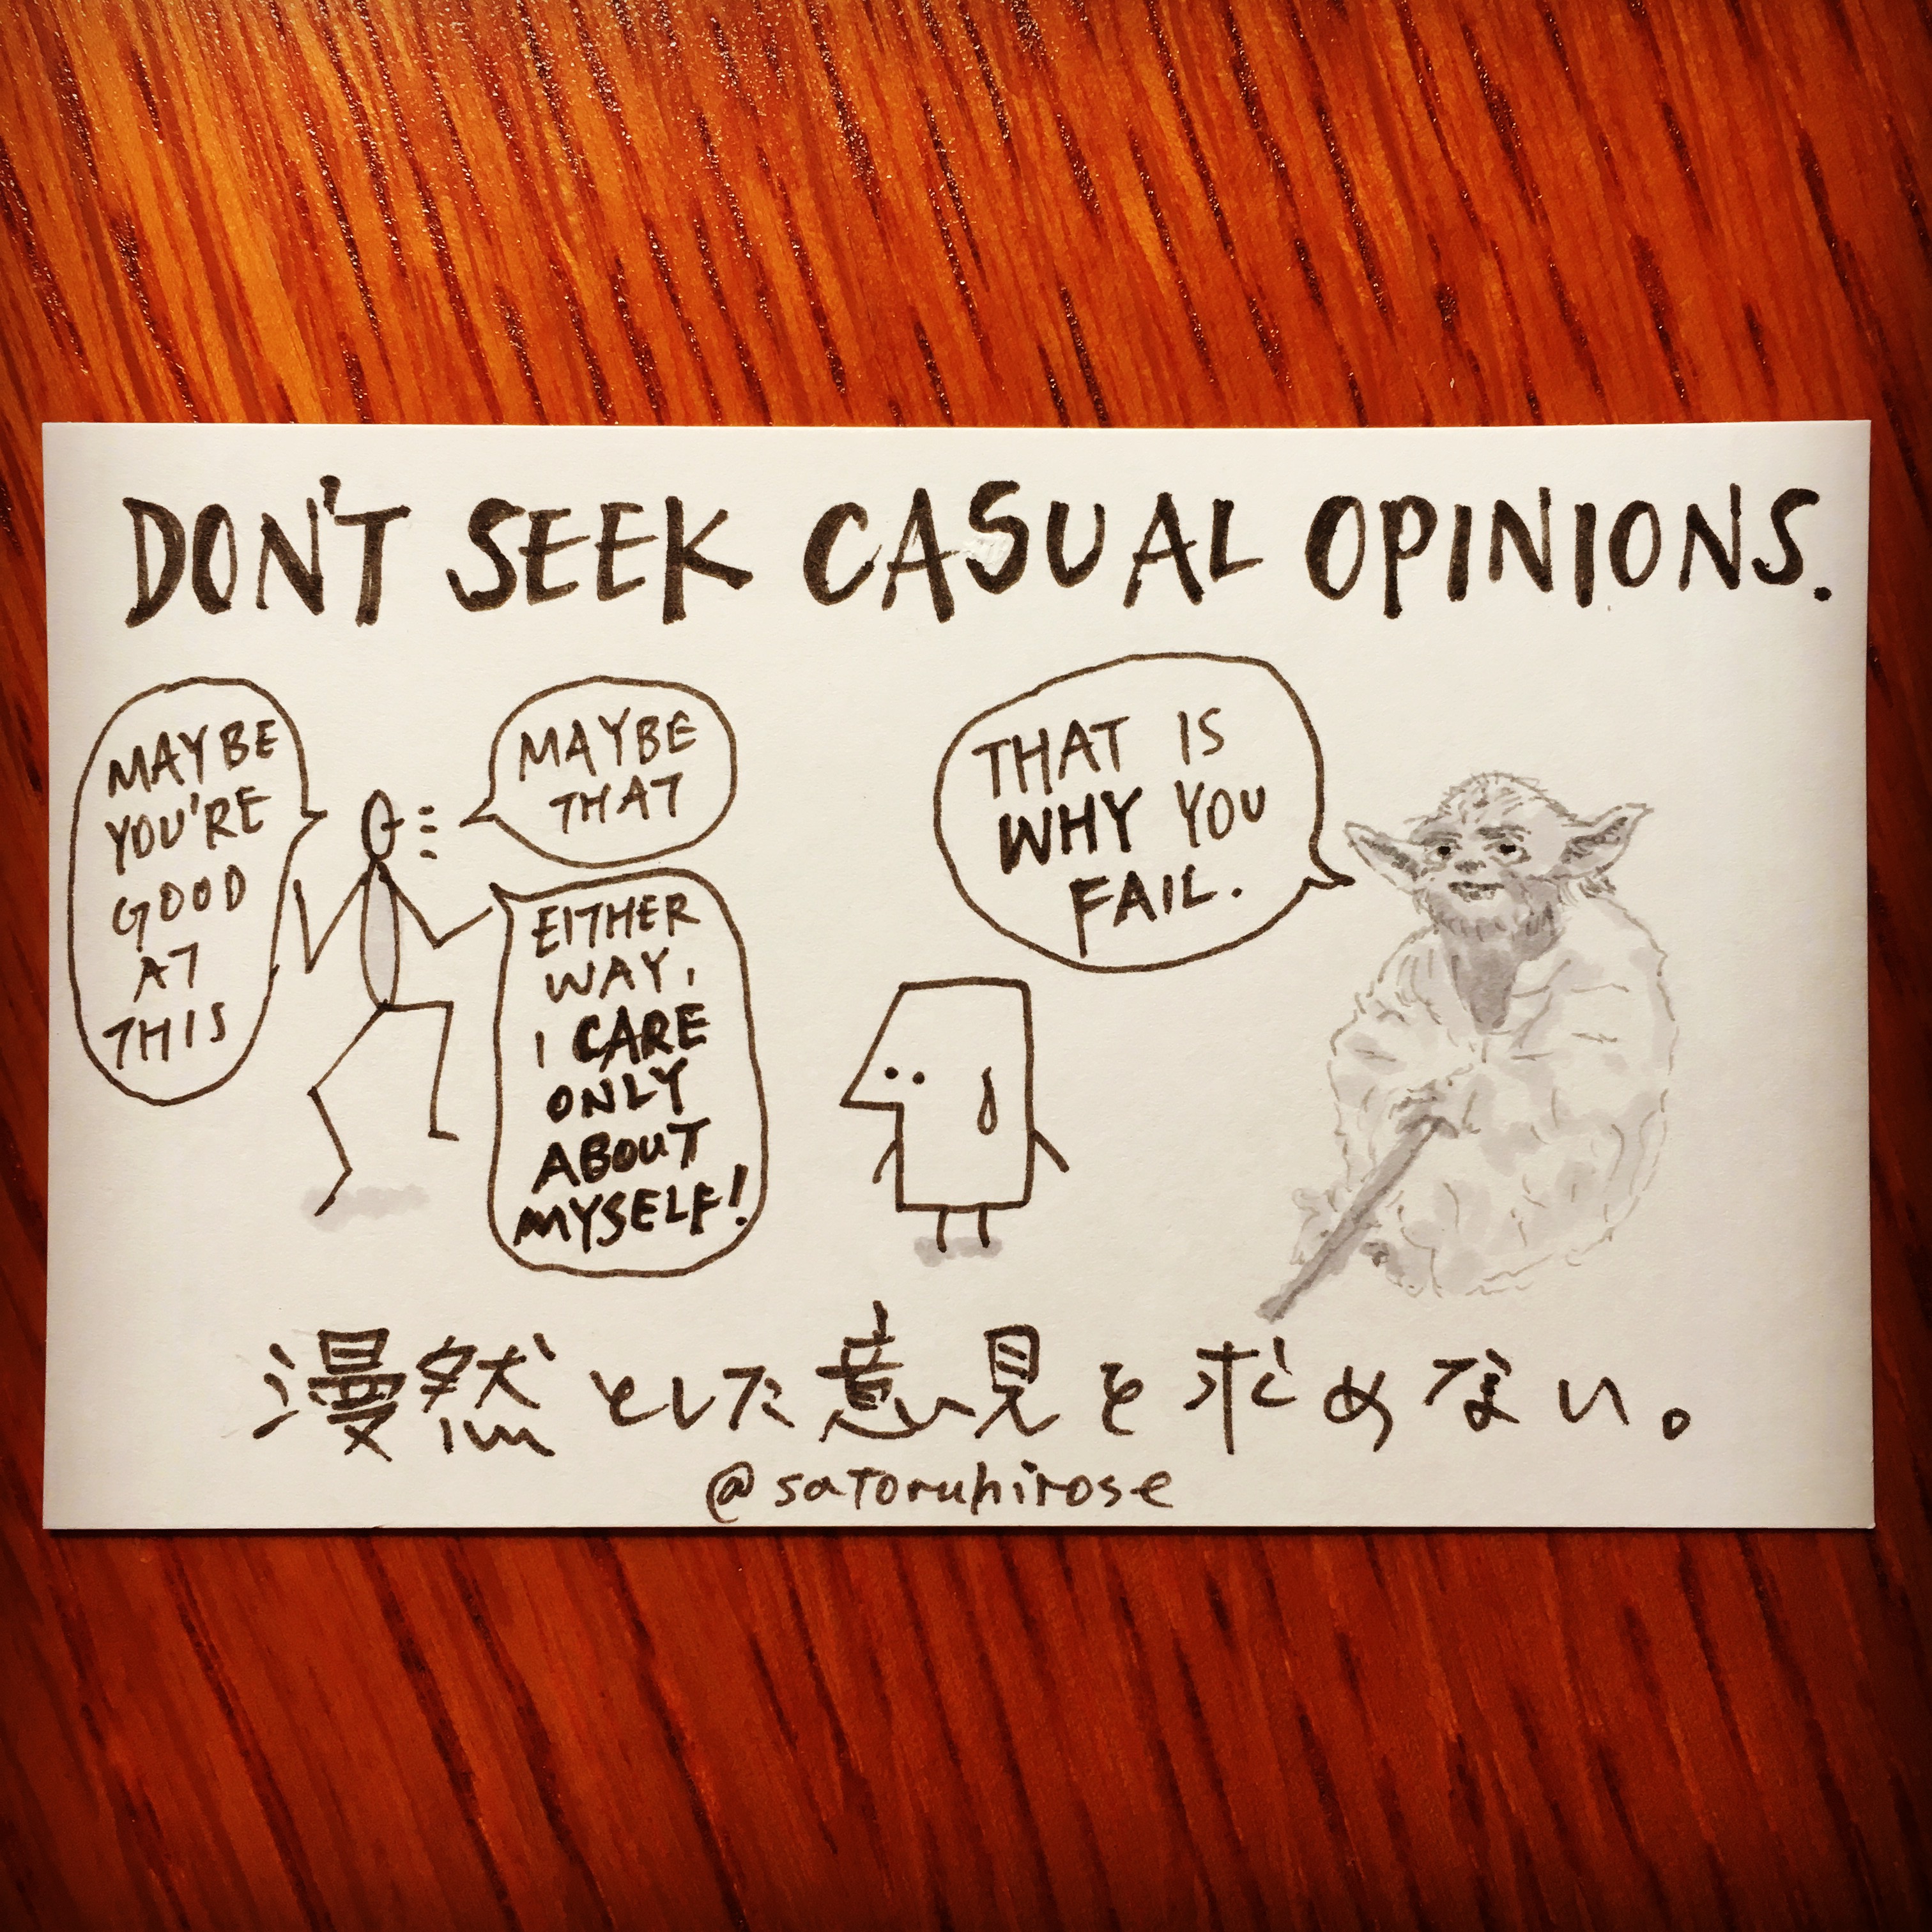 DON'T SEEK CASUAL OPINIONS.
MAYBE
YOU'RE
GOOD
AT
THIS
MAYBE
THAT
EITHER
WAY,
I CARE
ONLY
ABOUT
MYSELF!
THAT IS
WHY YOU
FAIL.
漫然とした意見を求めない。
@satoruhirose